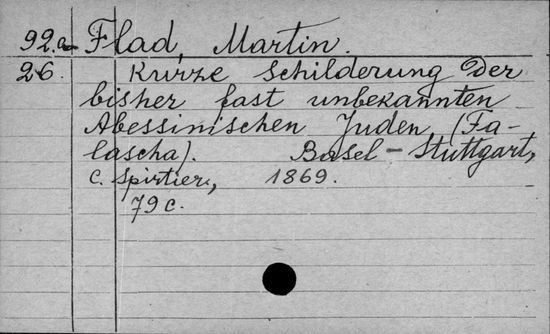 92.a Flad, Martin.
26. Kurze Schilderung der
bisher fast unbekannten
Abessinischen Juden, (Fa-
lascha). Basel-Stuttgart,
C. Spittler, 1869.
79 c.